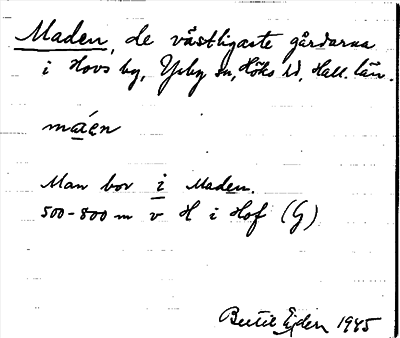 Maden, de västligaste gårdarna
i Hovs by, Ysby sn, Höks hd, Hall. län.
ma͠en
Man bor i Maden.
500-800 m v H i Hof (G)
Bertil Ejder 1945